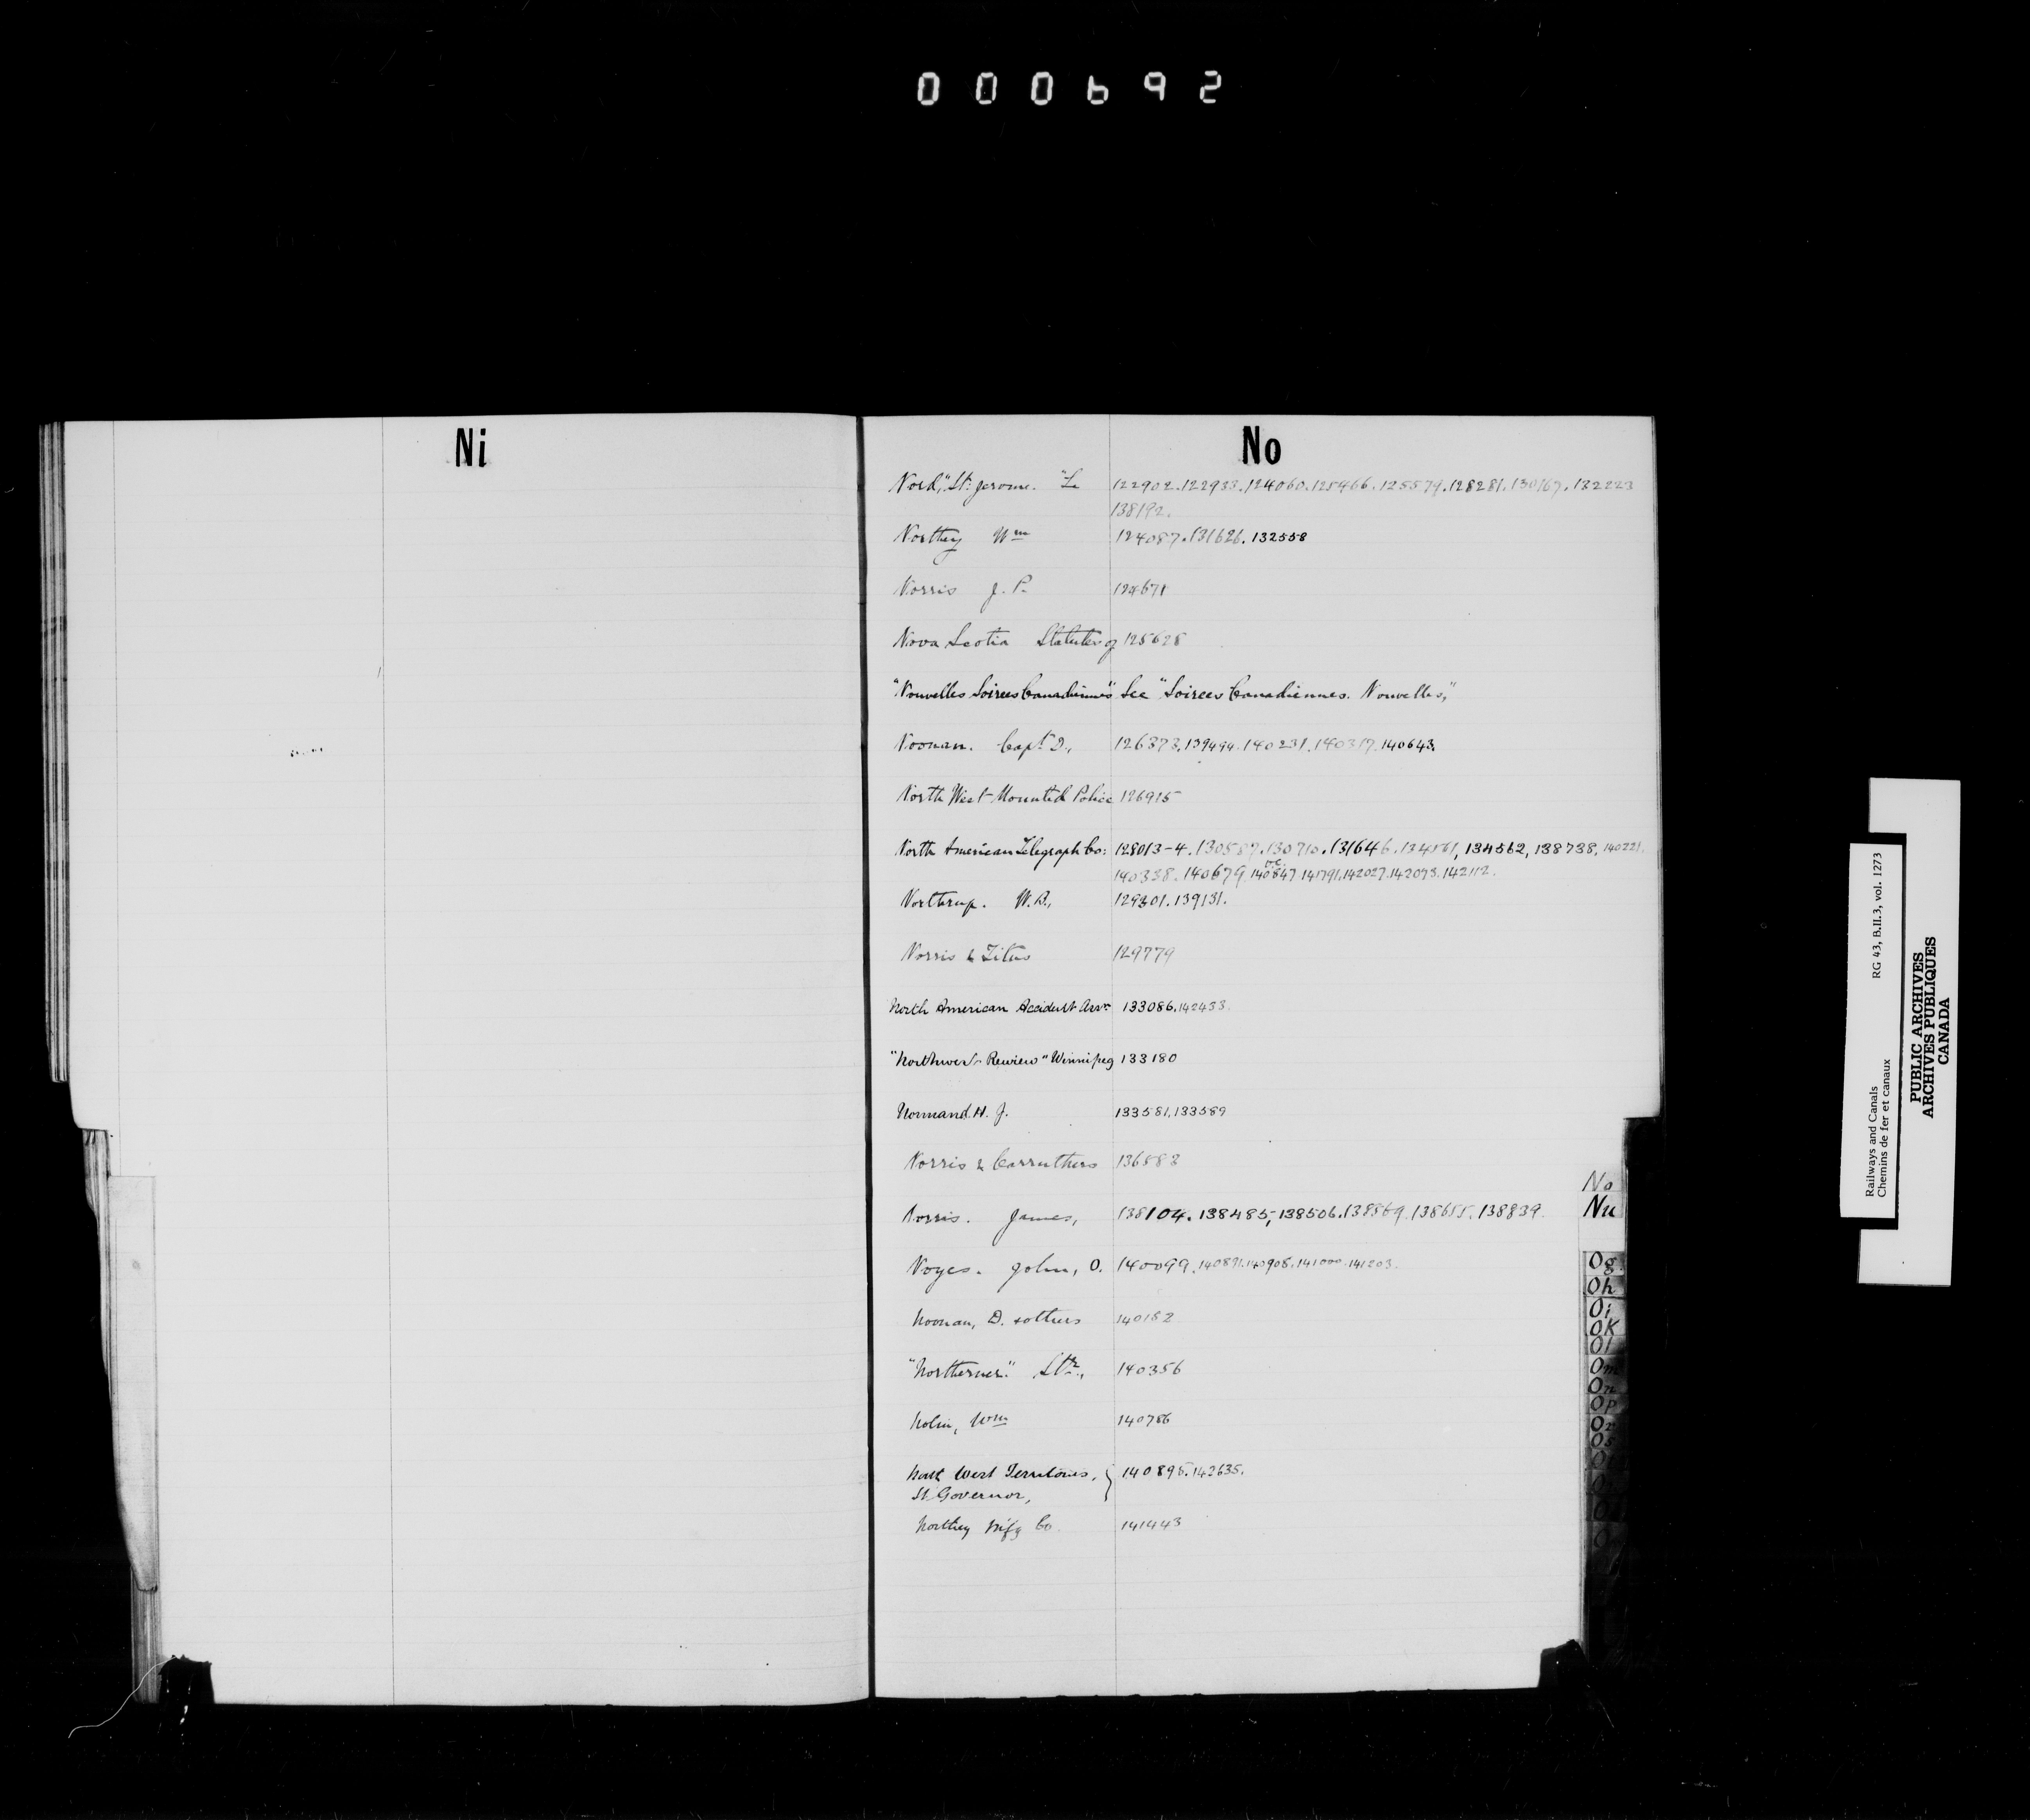 000692
Ni
No
Nord," St. Jerome. "Le 122902.122933.124060.125466.125579.128281.130167.132223
138192.
Northey Wm 124087.131626.132558
Norris J. P. 124671
Nova Scotia Statutes of 125628
"Nouvelles Soirees Canadiennes" See "Soirees Canadiennes. Nouvelles,"
Noonan. Capt. D., 126373.139494.140231.140317.140643
North West Mounted Police 126915
North American Telegraph Co: 128013-4.130587.130710.131646.134561,134562,138738,140221.
140338.140679 140847 141791.142027.142073.142112.
Northrup. W.B., 129301.139131.
Norris & Titus 129779
North American Accident Assn 133086.142433.
"Northwest Review" Winnipeg 133180
Normand. H. J. 133581.133589
Norris & Carruthers 136583
Norris. James, 138104.138485,138506.138569.138655.138839.
Noyes. John, O. 140099.140891.140908.141000.141203.
Noonan, D. & others 140152
"Northerner." Str., 140356
Nolin, Wm 140786
North West Territories, } 140895.142635.
Lt Governor,
Northey Mfg Co. 141443
No
Nu
Og
Oh
Oi
OK
Ol
Om
On
Op
Or
Os
Railways and Canals RG 43, B.II.3, vol. 1273
Chemins de fer et canaux
PUBLIC ARCHIVES
ARCHIVES PUBLIQUES
CANADA